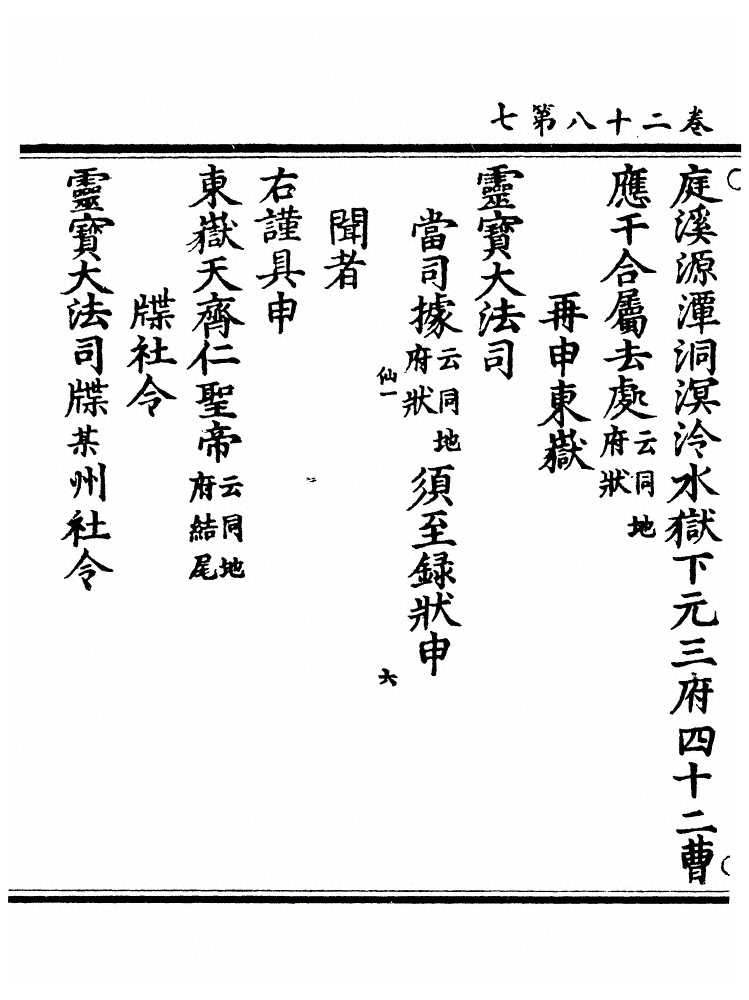 卷二十八第七
庭溪源潭洞溟泠水獄下元三府四十二曹
應干合屬去處云同地府狀
再申東嶽
靈寶大法司
當司據云同地府狀須至録狀申
仙一
六
聞者
右謹具申
東嶽天齊仁聖帝云同地府結尾
牒社令
靈寶大法司牒某州社令